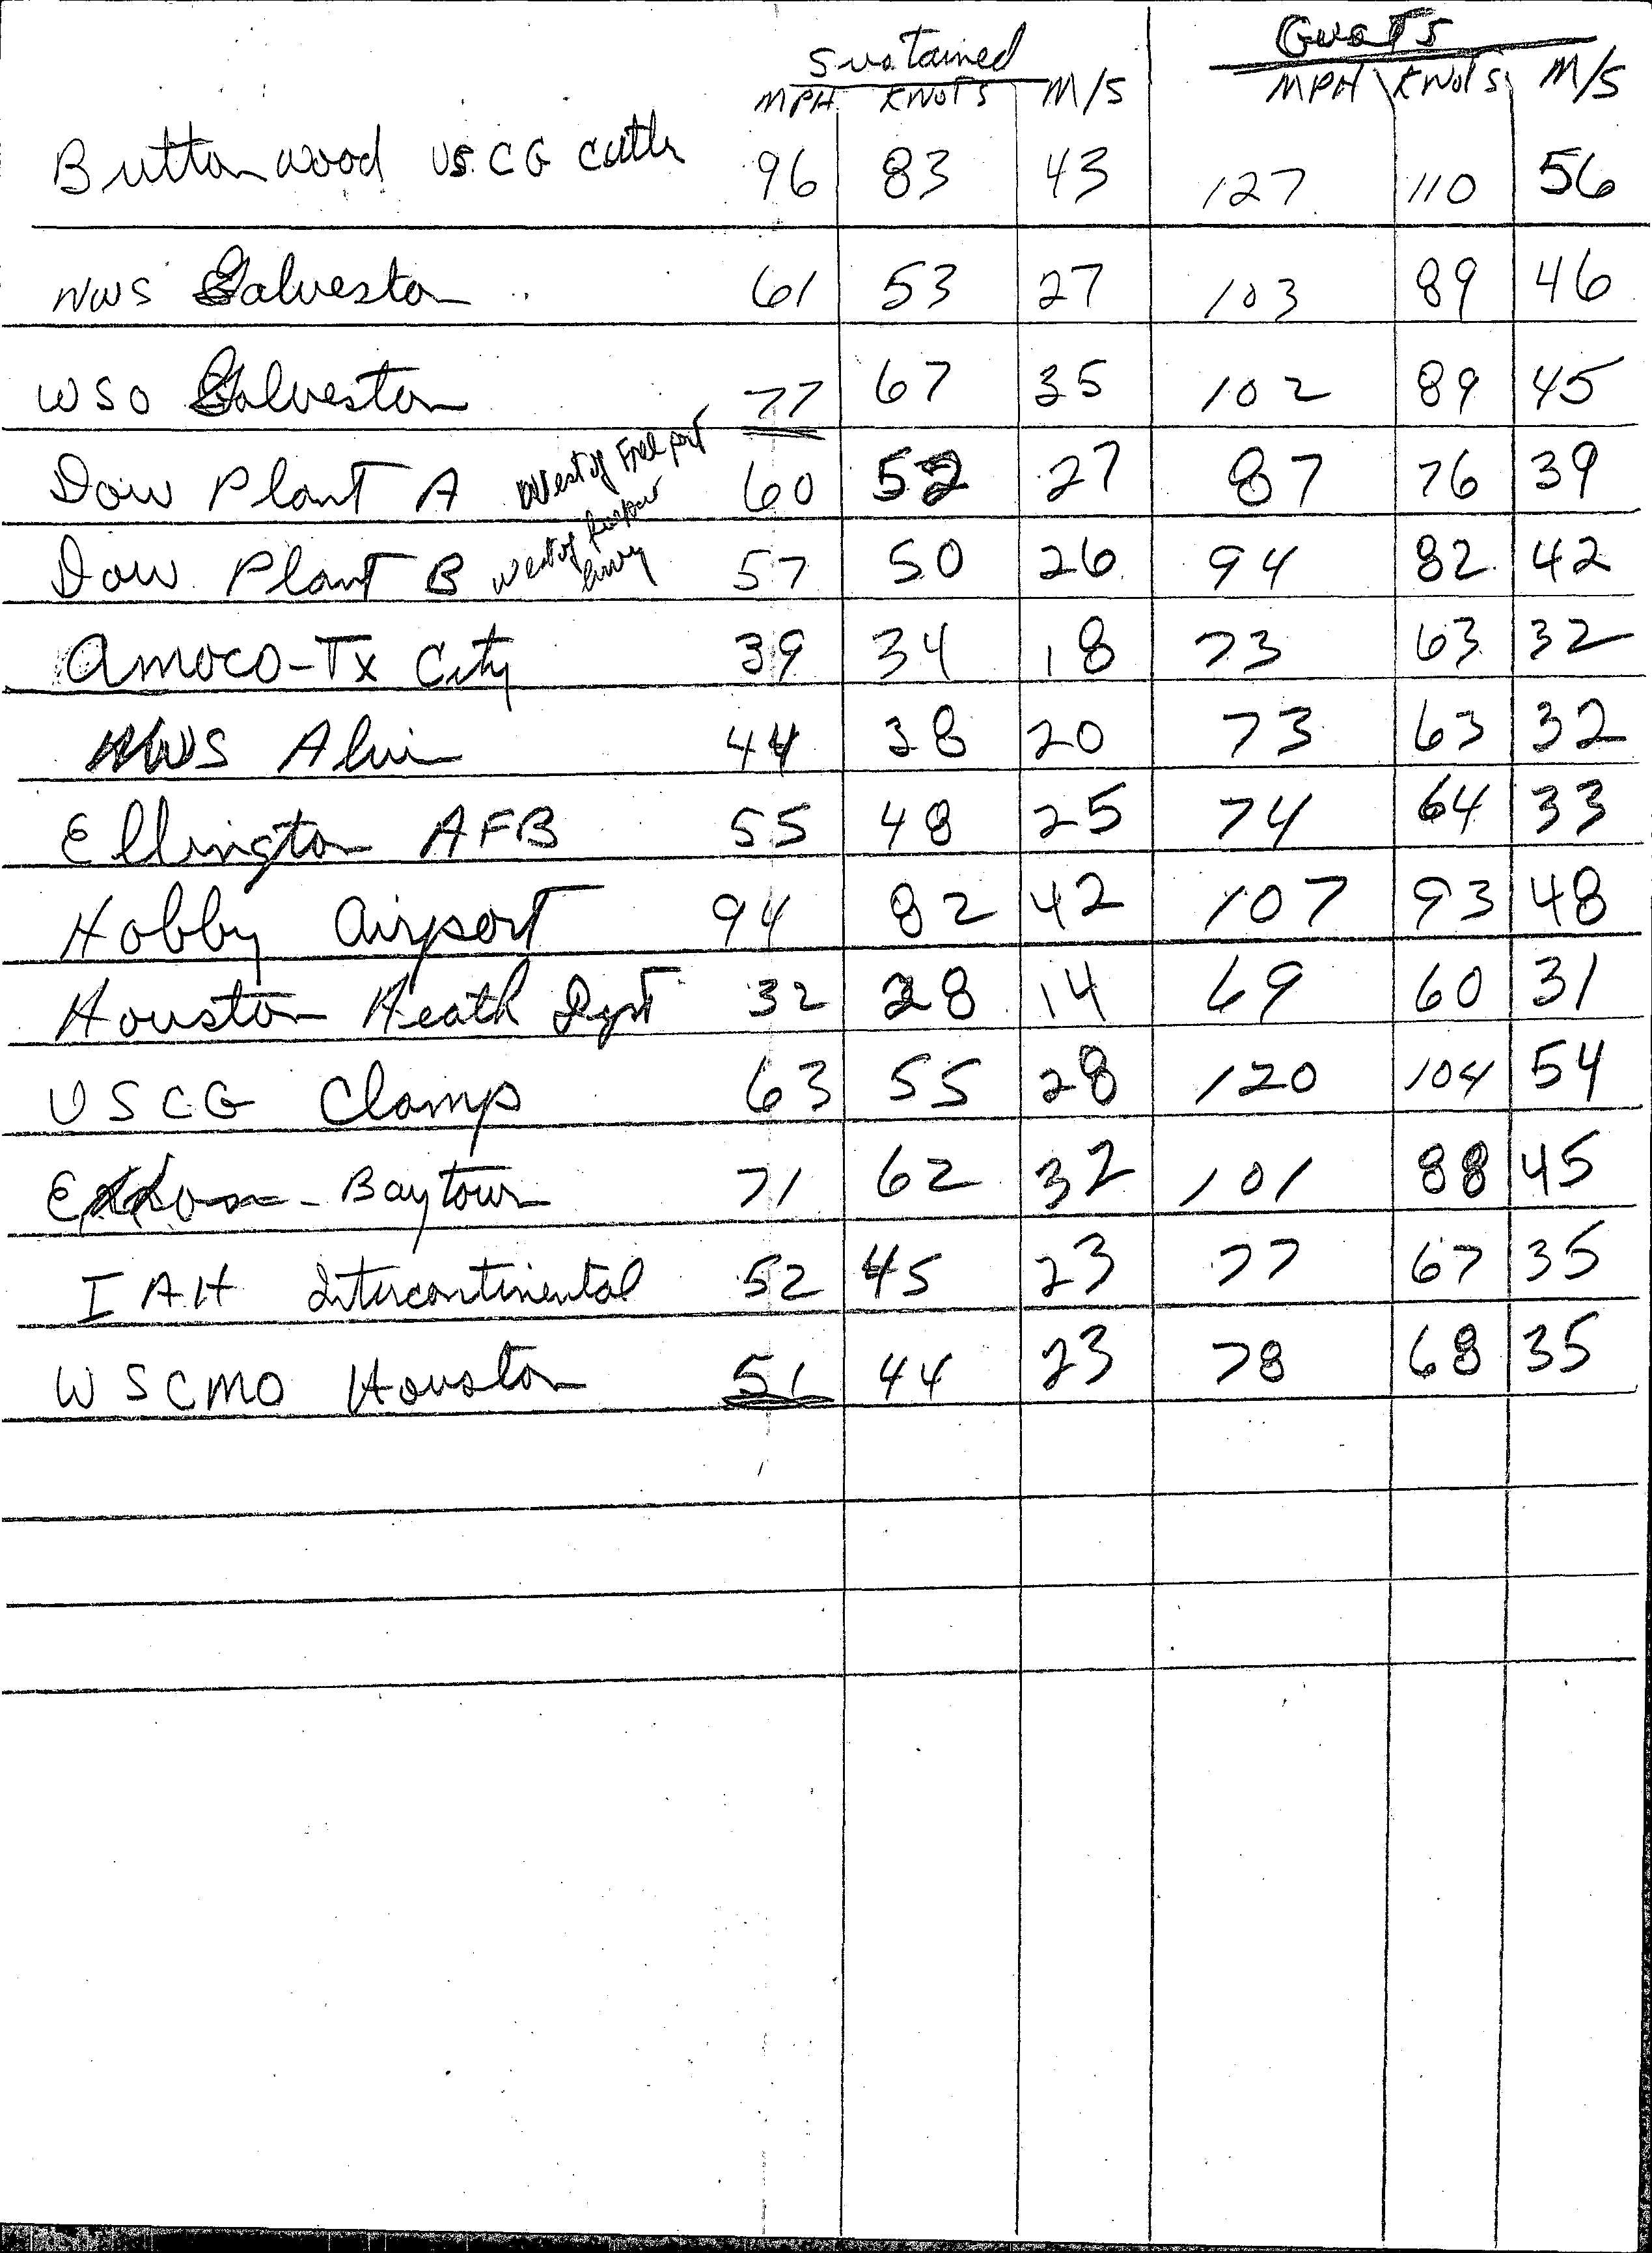 Sustained Gusts
MPH KNOTS M/S MPH KNOTS M/S
Buttonwood USCG Cutter 96 83 43 127 110 56
NWS Galveston 61 53 27 103 89 46
WSO Galveston 77 67 35 102 89 45
Dow Plant A West of Freeport 60 52 27 87 76 39
Dow Plant B West of 57 50 26 94 82 42
Amoco-Tx City 39 34 18 73 63 32
NWS Alvin 44 38 20 73 63 32
Ellington AFB 55 48 25 74 64 33
Hobby Airport 94 82 42 107 93 48
Houston Heath Dept 32 28 14 69 60 31
USCG Clamp 63 55 28 120 104 54
Exxon - Baytown 71 62 32 101 88 45
IAH Intercontinental 52 45 23 77 67 35
WSCMO Houston 51 44 23 78 68 35